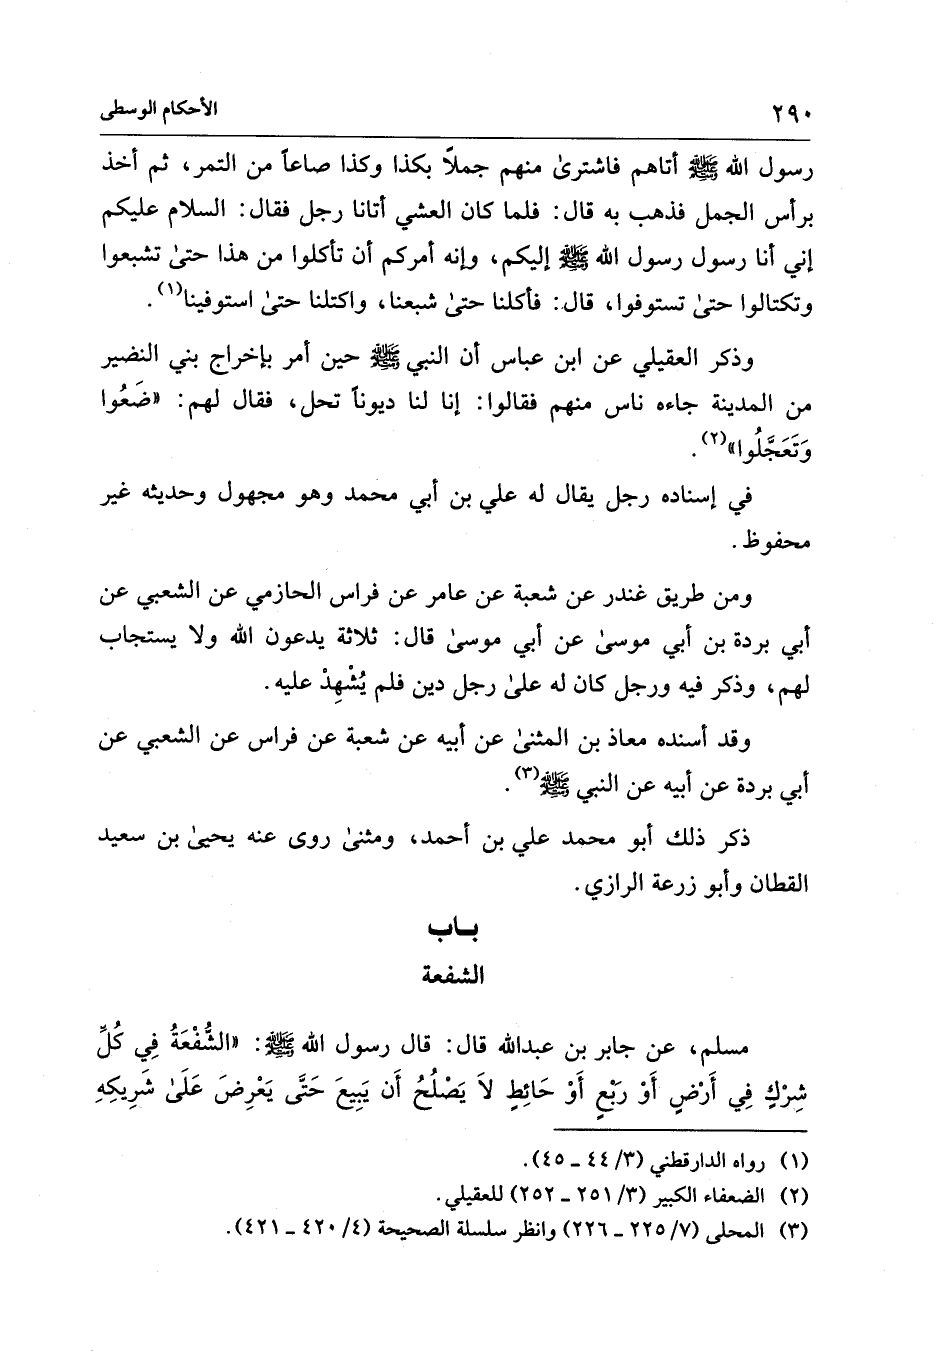 ٢٩٠ الأحكام الوسطى
رسول الله ﷺ أتاهم فاشترىٰ منهم جملاً بكذا وكذا صاعاً من التمر، ثم أخذ
برأس الجمل فذهب به قال: فلما كان العشي أتانا رجل فقال: السلام عليكم
إني أنا رسول رسول الله ﷺ إليكم، وإنه أمركم أن تأكلوا من هذا حتىٰ تشبعوا
وتكتالوا حتىٰ تستوفوا، قال: فأكلنا حتىٰ شبعنا، واكتلنا حتىٰ استوفينا(١).
وذكر العقيلي عن ابن عباس أن النبي ﷺ حين أمر بإخراج بني النضير
من المدينة جاءه ناس منهم فقالوا: إنا لنا ديوناً تحل، فقال لهم: «ضَعُوا
وَتَعَجَّلُوا»(٢).
في إسناده رجل يقال له علي بن أبي محمد وهو مجهول وحديثه غير
محفوظ.
ومن طريق غندر عن شعبة عن عامر عن فراس الحازمي عن الشعبي عن
أبي بردة بن أبي موسىٰ عن أبي موسىٰ قال: ثلاثة يدعون الله ولا يستجاب
لهم، وذكر فيه ورجل كان له علىٰ رجل دين فلم يُشْهِدْ عليه.
وقد أسنده معاذ بن المثنىٰ عن أبيه عن شعبة عن فراس عن الشعبي عن
أبي بردة عن أبيه عن النبي ﷺ(٣).
ذكر ذلك أبو محمد علي بن أحمد، ومثنىٰ روى عنه يحيىٰ بن سعيد
القطان وأبو زرعة الرازي.
بـاب
الشفعة
مسلم، عن جابر بن عبدالله قال: قال رسول الله ﷺ: «الشُّفْعَةُ فِي كُلِّ
شِرْكٍ فِي أَرْضٍ أَوْ رَبْعٍ أَوْ حَائِطٍ لاَ يَصْلُحُ أَن يَبِيعَ حَتَّى يَعْرِضَ عَلَىٰ شَرِيكِهِ
(١) رواه الدارقطني (٣/ ٤٤ ـ ٤٥).
(٢) الضعفاء الكبير (٣/ ٢٥١ ـ ٢٥٢) للعقيلي.
(٣) المحلى (٧/ ٢٢٥ ـ ٢٢٦) وانظر سلسلة الصحيحة (٤/ ٤٢٠ ـ ٤٢١).